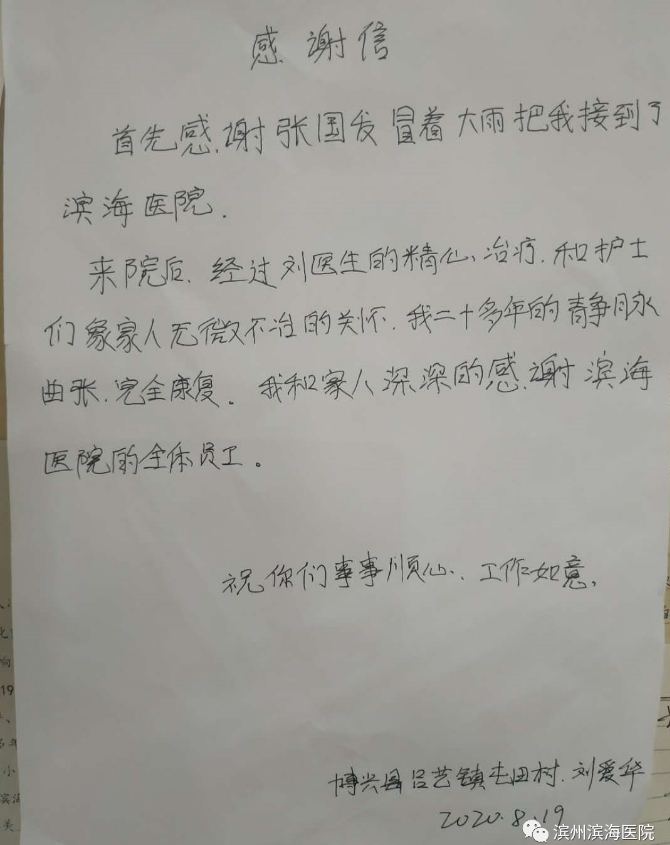 感谢信
首先感谢张国发冒着大雨把我接到了
滨海医院.
来院后.经过刘医生的精心、治疗.和护士
们象家人无微不治的关怀.我二十多年的静脉
曲张.完全康复。我和家人深深的感谢滨海
医院的全体员工。
祝你们事事顺心、工作如意.
博兴县吕艺镇屯田村.刘爱华
2020.8.19
滨州滨海医院